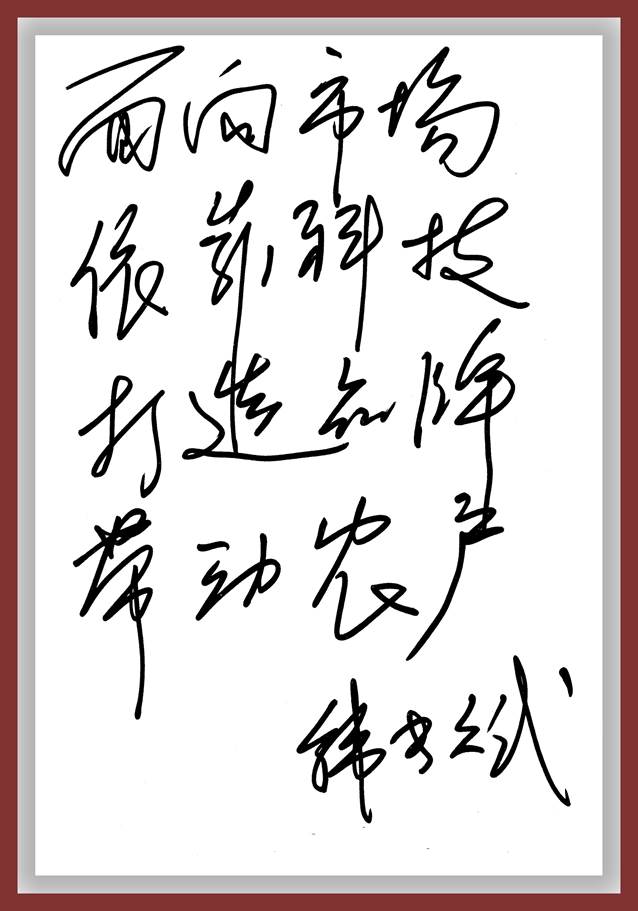 面向市场
依靠科技
打造品牌
带动农户